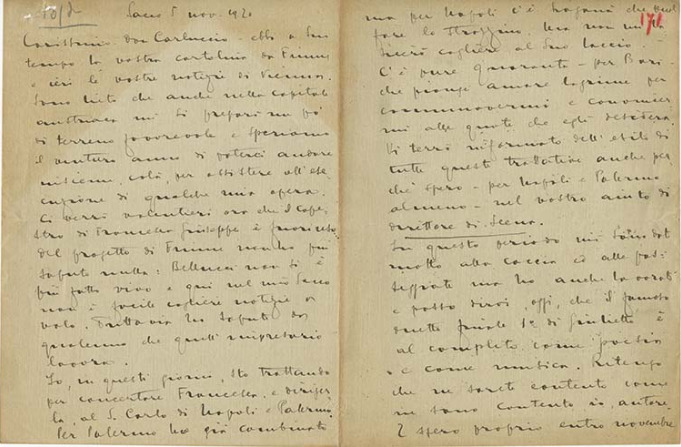 Laco 5 nov. 1920
Carissimo don Carluccio - ebbi a suo
tempo la vostra cartolina da Fiume
e ieri le vostre notizie di Vienna.
Sono lieto che anche nella capitale
austriaca mi si prepari un pò
di terreno favorevole e speriamo
il venturo anno di poterci andare
insieme, colà, per assistere all'ese
cuzione di qualche mia opera.
Ci verrò volentieri ora che il cape
stro di Francesco Giuseppe è
del progetto di Fiume non ho più
saputo nulla: Bellucci non si è
più fatto vivo e qui nel mio Laco
non è facile cogliere notizie a
volo. Tuttavia ho saputo da
qualcuno che quell'impresario
lavora.
Io, in questi giorni, sto trattando
per concertare Francesca, e diriger
la, al S. Carlo di Napoli e Palermo.
Per Palermo ho già combinato
171
ma per Napoli c'è Laganà che vuol
fare lo strozzino. Ma non mi la
scierò cogliere al suo laccio.
C'è pure Quaranta - per Bari -
che piange amare lagrime per
commuovermi e
mi alle quote che egli desidera.
Vi terrò informato dell'esito di
tutte queste trattative anche per
chè spero - per Napoli e Palermo
almeno - nel vostro aiuto di
direttore di Scena.
In questo periodo mi sono dato
molto alla caccia ed alle pas
seggiate ma ho anche lavorato
e posso dirvi, oggi, che il famoso
duetto finale 1º di Giulietta è
al completo come poesia
e come musica. Ritengo
che ne sarete contento come
ne sono contento io, autore.
E spero proprio entro novembre